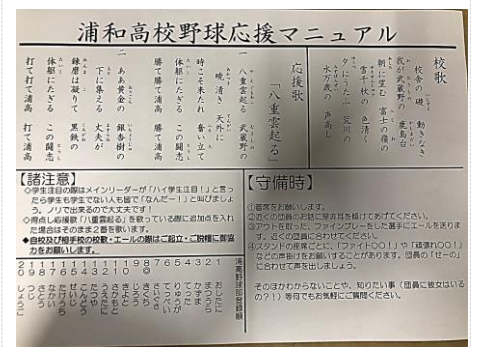 浦和高校野球応援マニュアル
校歌
校舎の礎 動きなき
我が武蔵野の 鹿島台
朝に望む 富士の嶺の
富士秋の 色清く
夕にうたふ 荒川の
水万歳の 声高し
応援歌
「八重雲起る」
一 八重雲起る 武蔵野の
暁清き 天外に
時こそ来たれ 奮い立て
体躯にたぎる この闘志
勝て勝て浦高 勝て浦高
二 ああ黄金の 銀杏樹の
下に集える 丈夫が
錬磨は凝りて 黒鉄の
体躯にたぎる この闘志
打て打て浦高 打て浦高
【諸注意】
◇学生注目の際はメインリーダーが「ハイ学生注目!」と言っ
たら学生も学生でない人も皆で「なんだー!」と叫びましょ
う。ノリで出来るので大丈夫です!
◇得点し応援歌「八重雲起る」を歌っている際に追加点を入れ
た場合はそのまま2番を歌います。
◆自校及び相手校の校歌・エールの際はご起立・ご脱帽に御協
力をお願いします。
浦高野球部登録順
1 おしだに
2 まなか
3 かずま
4 てった
5 りゅうが
6 てっぺい
7 さくち
8 きくち
9 きよと
【守備時】
①着席をお願いします。
②近くの団員のお話に是非耳を傾けてあげてください。
③アウトを取った、ファインプレーをした選手にエールを送りま
す。近くの団員に合わせてください。
④スタンドの座席ごとに、「ファイト○○!」や「頑張れ○○!」
などの声掛けをお願いすることがあります。団員の「せーの」
に合わせて声を出しましょう。
そのほかわからないことや、知りたい事(団員に彼女はいる
の?!)等何でもお気軽にご質問ください。